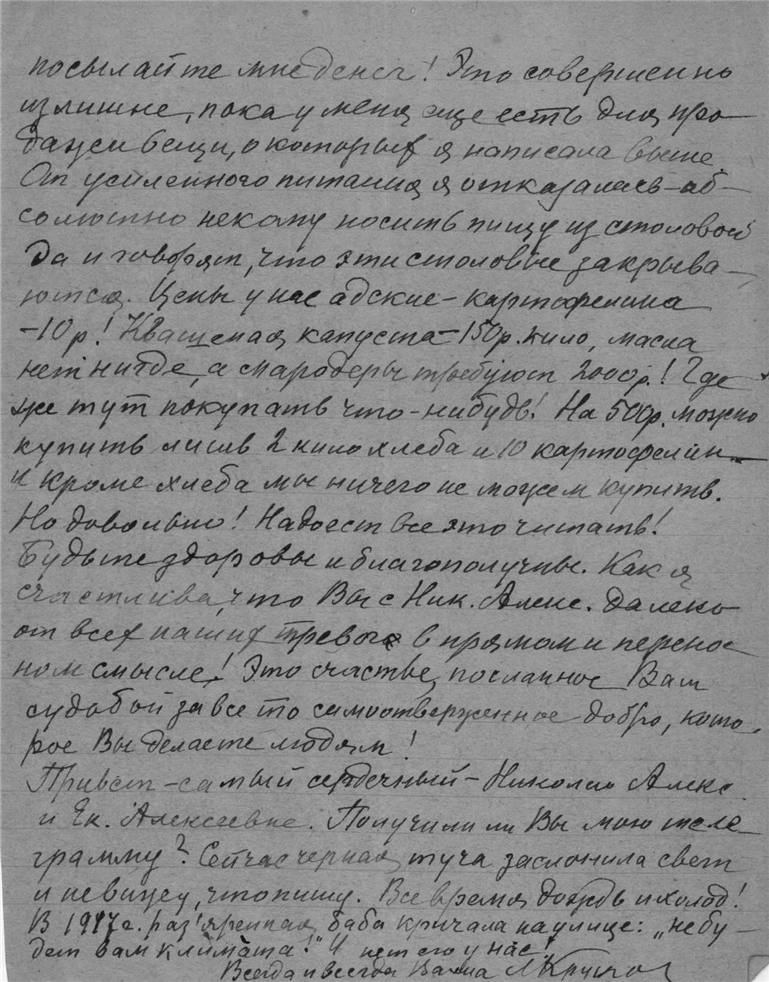 посылайте мне денег! Это совершенно
излишне, пока у меня еще есть для про-
дажи вещи, о которых я написала выше
От усиленного питания я отказалась – аб-
солютно некому носить пищу из столовой
да и говорят, что эти столовые закрыва-
ются. Цены у нас адские – картофелина
– 10 р.! Квашеная капуста – 150 р. кило, масла
нет нигде, а мародеры требуют 2000 р.! Где
же тут покупать что-нибудь! На 500 р. можно
купить лишь 2 кило хлеба и 10 картофелин –
и кроме хлеба мы ничего не можем купить.
Но довольно! Надоест все это читать!
Будьте здоровы и благополучны. Как я
счастлива, что Вы с Ник. Алекс. далеко
от всех наших тревог в прямом и перенос
ном смысле! Это счастье, посланное Вам
судьбой за все то самоотверженное добро, кото-
рое Вы делаете людям!
Привет – самый сердечный – Николаю Алекс.
и Ек. Алексеевне. Получили ли Вы мою теле-
грамму? Сейчас черная туча заслонила свет
и не вижу, что пишу. Все время дождь и холод!
В 1917 г. раз'яренная баба кричала на улице: „не бу-
дет вам климата!" И нет его у нас!
Всегда и всегда Ваша